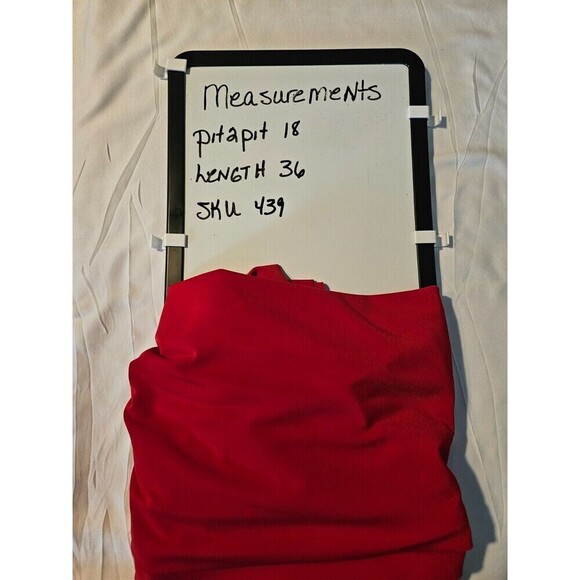 Measurements
pit2pit 18
LENGTH 36
SKU 439